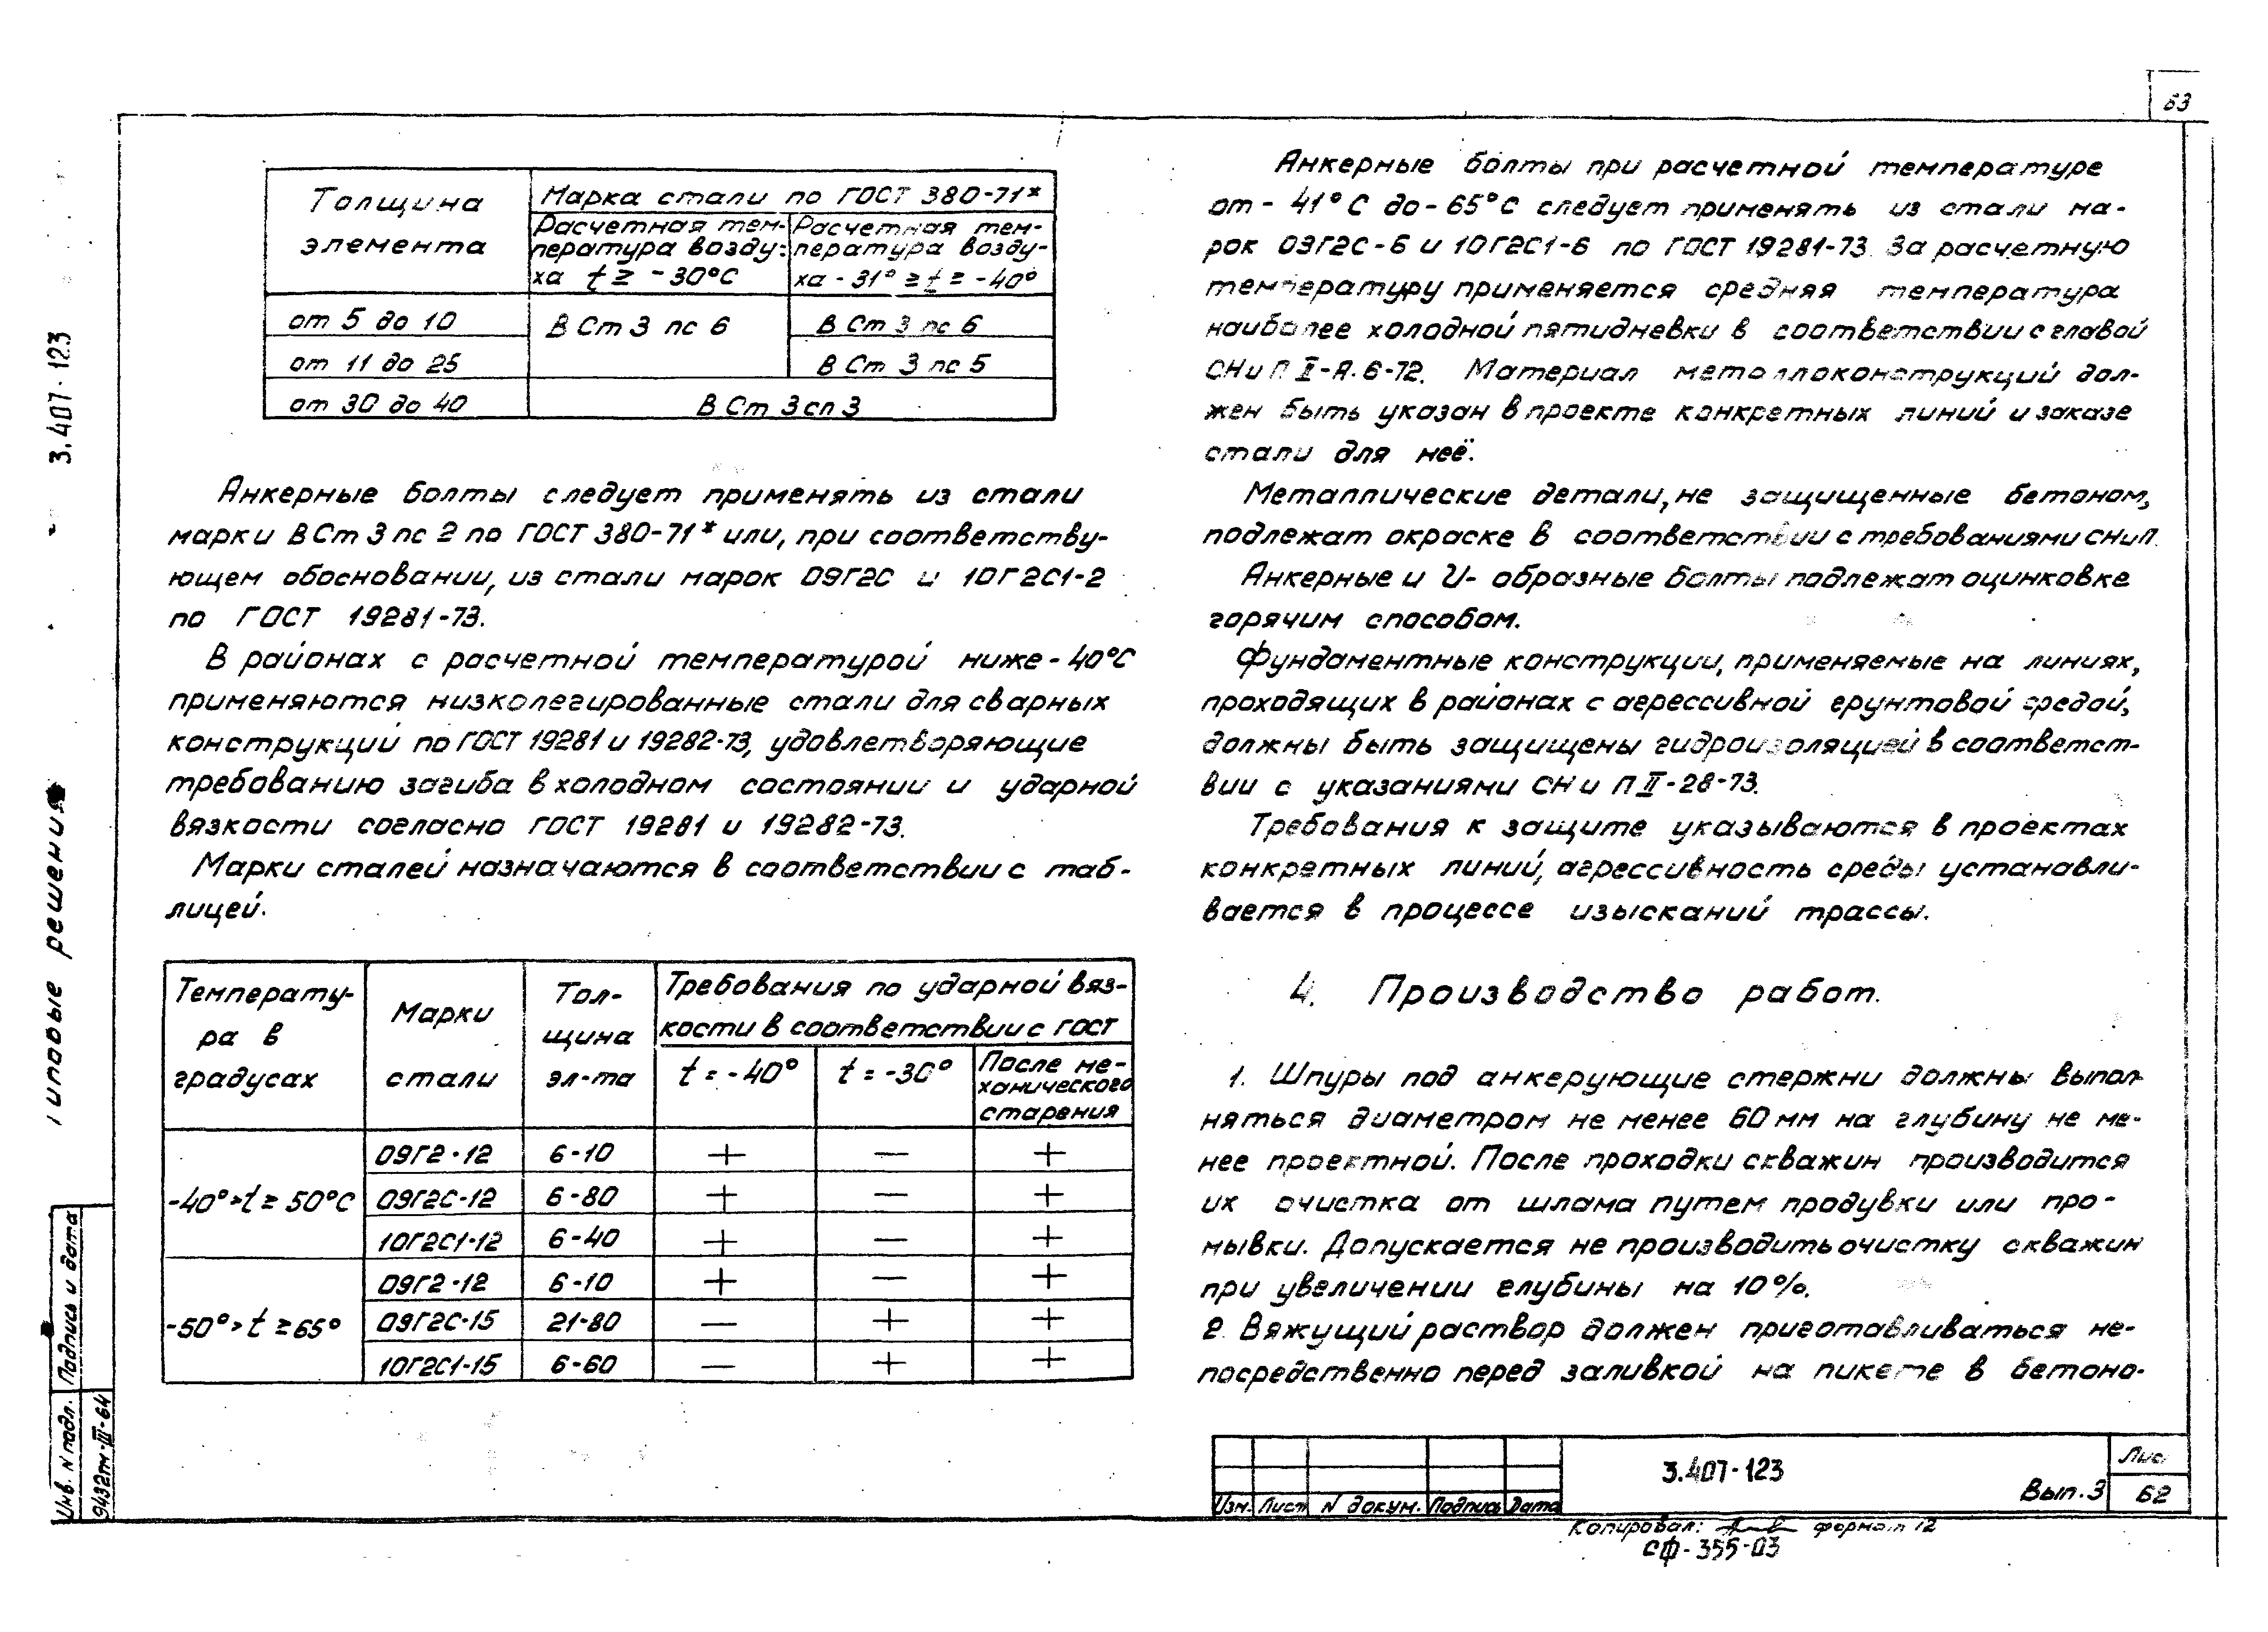 63
Толщина элемента
Марка стали по ГОСТ 380-71*
Расчетная тем-
пература возду-
ха t ≥ -30°С
Расчетная тем-
пература возду-
ха -31° ≥ t ≥ -40°
от 5 до 10
В Ст 3 пс 6
В Ст 3 пс 6
от 11 до 25
В Ст 3 пс 5
от 30 до 40
В Ст 3 сп 3
Анкерные болты следует применять из стали
марки ВСт 3 пс 2 по ГОСТ 380-71* или, при соответству-
ющем обосновании, из стали марок 09Г2С и 10Г2С1-2
по ГОСТ 19281-73.
В районах с расчетной температурой ниже -40°С
применяются низколегированные стали для сварных
конструкций по ГОСТ 19281 и 19282-73, удовлетворяющие
требованию загиба в холодном состоянии и ударной
вязкости согласно ГОСТ 19281 и 19282-73.
Марки сталей назначаются в соответствии с таб-
лицей.
Температу-
ра в
градусах
Марки
стали
Тол-
щина
эл-та
Требования по ударной вяз-
кости в соответствии с ГОСТ
t = -40°
t = -30°
После ме-
ханического
старения
-40° > t ≥ 50°С
09Г2-12 6-10 + — +
09Г2С-12 6-80 + — +
10Г2С1-12 6-40 + — +
-50° > t ≥ 65°
09Г2-12 6-10 + — +
09Г2С-15 21-80 — + +
10Г2С1-15 6-60 — + +
Анкерные болты при расчетной температуре
от - 41°С до - 65°С следует применять из стали ма-
рок 09Г2С-6 и 10Г2С1-6 по ГОСТ 19281-73. За расчетную
температуру применяется средняя температура
наиболее холодной пятидневки в соответствии с главой
СНиП II-А.6-72. Материал металлоконструкций дол-
жен быть указан в проекте конкретных линий и заказе
стали для неё.
Металлические детали, не защищенные бетоном,
подлежат окраске в соответствии с требованиями СНиП.
Анкерные и U- образные болты подлежат оцинковке
горячим способом.
Фундаментные конструкции, применяемые на линиях,
проходящих в районах с агрессивной грунтовой средой,
должны быть защищены гидроизоляцией в соответст-
вии с указаниями СНиП II-28-73.
Требования к защите указываются в проектах
конкретных линий, агрессивность среды устанавли-
вается в процессе изысканий трассы.
4. Производство работ.
1. Шпуры под анкерующие стержни должны выпол-
няться диаметром не менее 60 мм на глубину не ме-
нее проектной. После проходки скважин производится
их очистка от шлама путем продувки или про-
мывки. Допускается не производить очистку скважин
при увеличении глубины на 10%.
2. Вяжущий раствор должен приготавливаться не-
посредственно перед заливкой на пикете в бетоно-
Изм. Лист N докум. Подпись Дата
3.407-123
Вып.3
Лис
62
Копировал: формат 12
СФ-355-03
3.407-123
Типовые решения
Подпись и дата
Инв. N подл.
9432тм-III-64